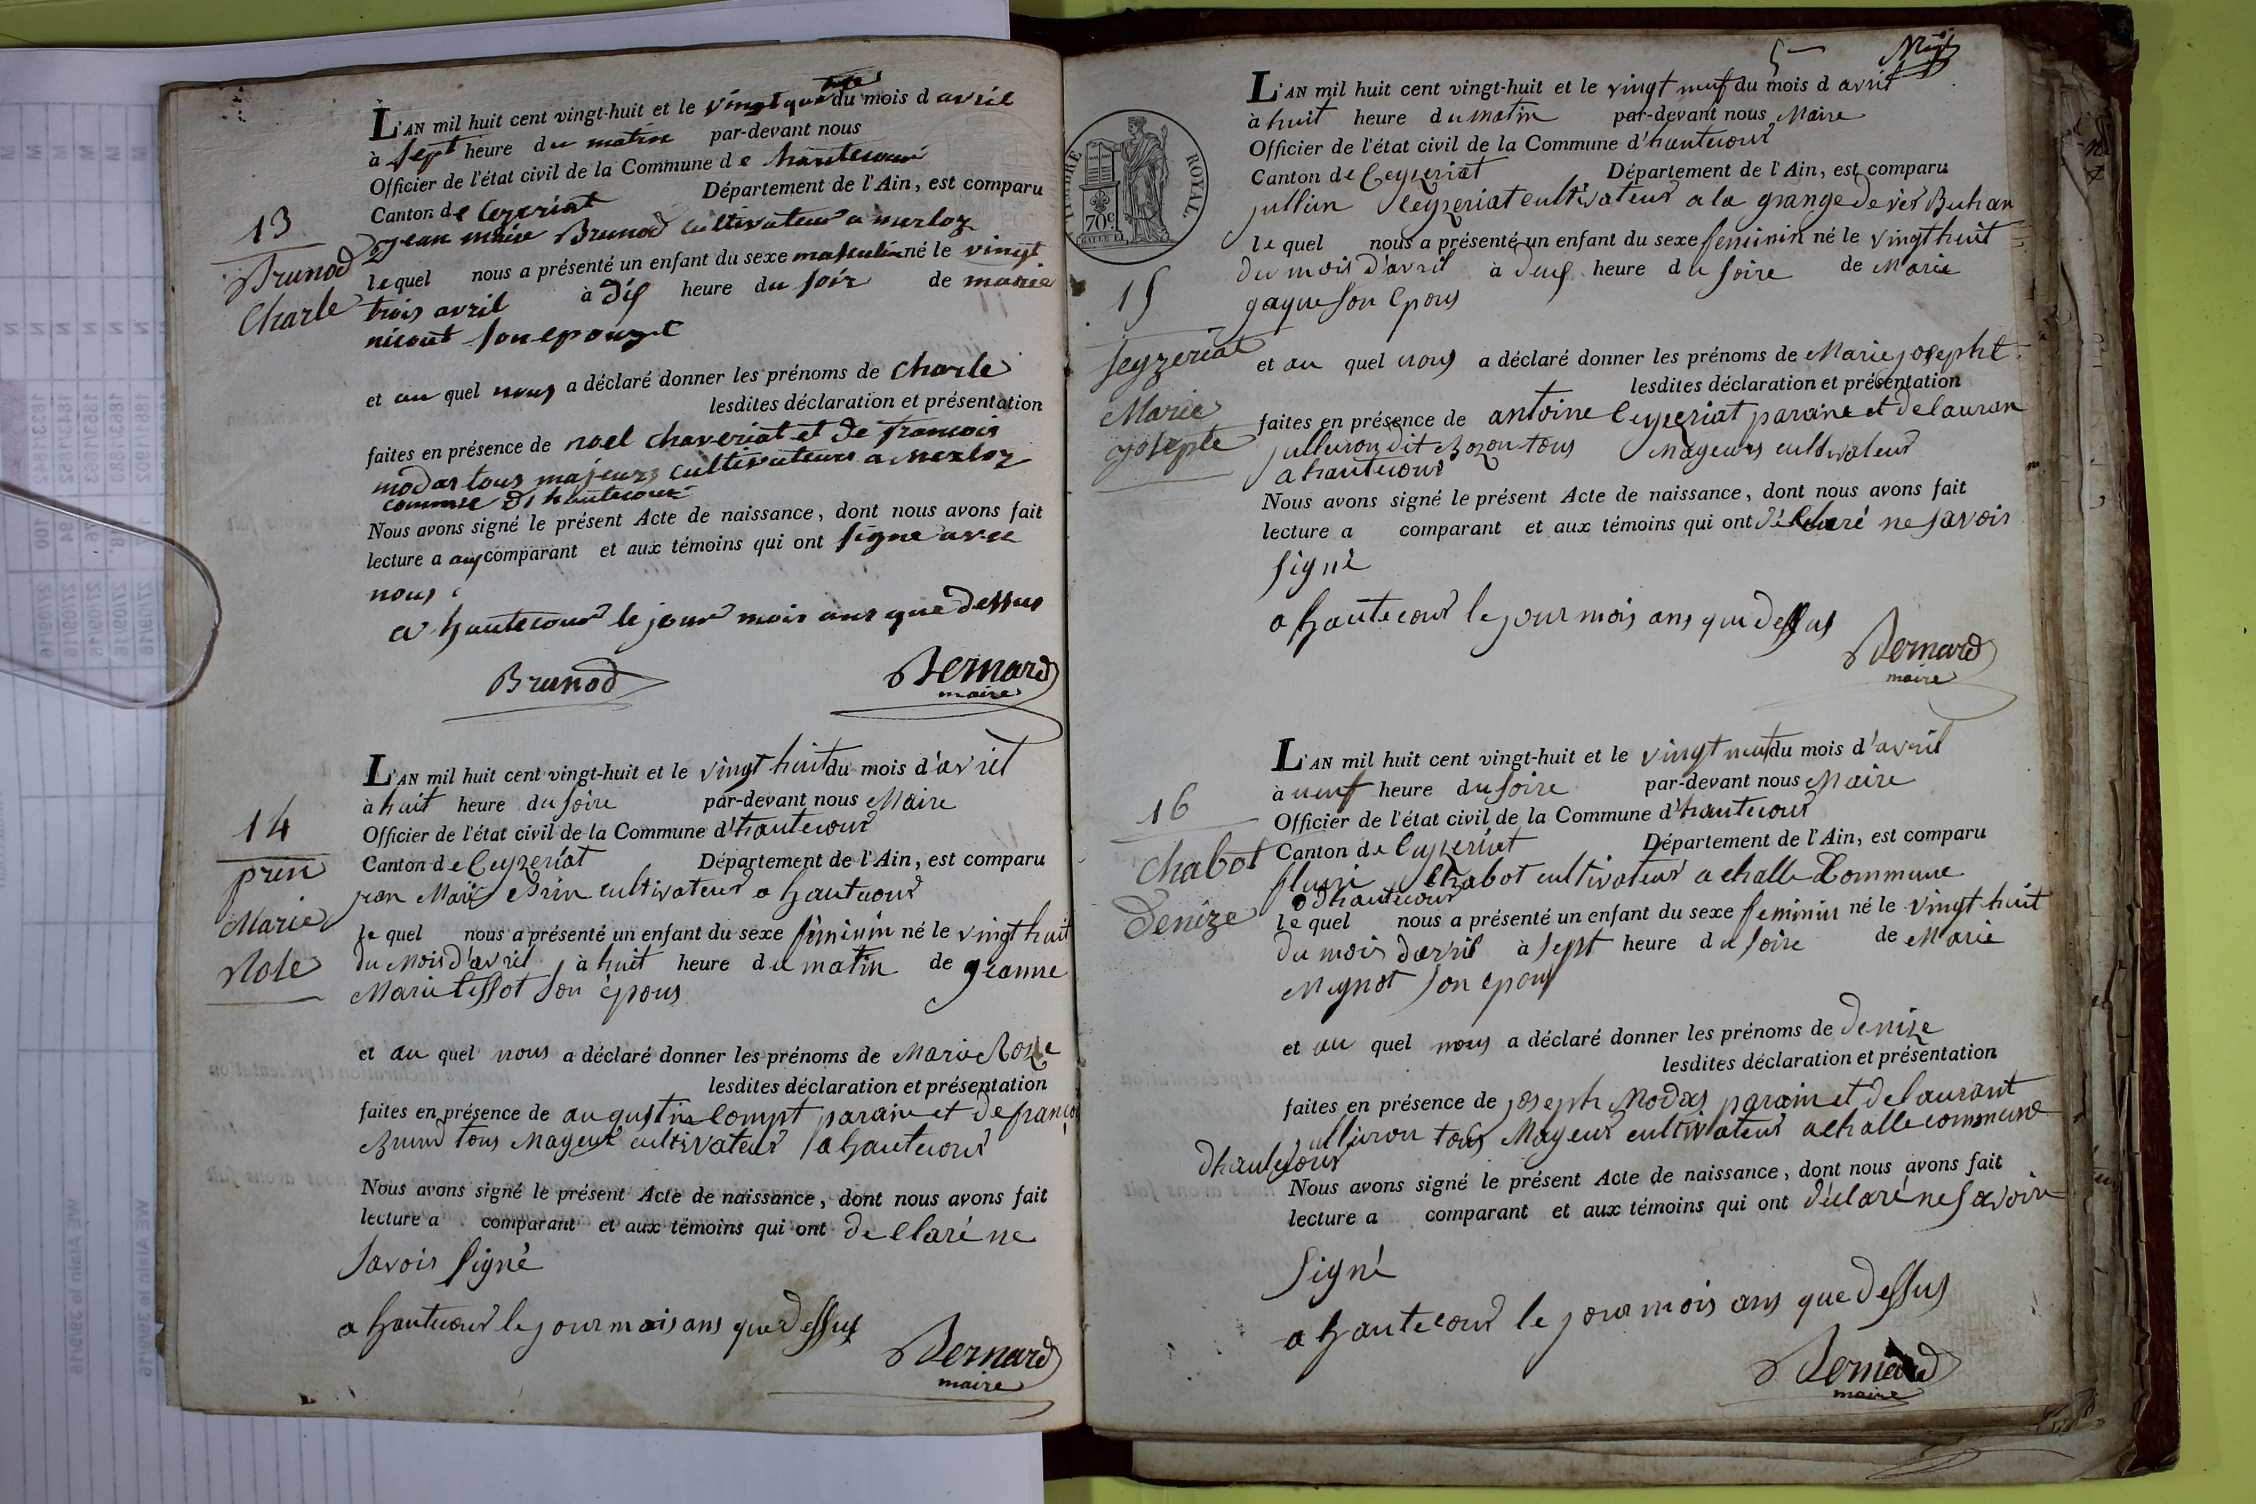 L'AN mil huit cent vingt-huit et le vingt quatre du mois d avril
à sept heure du matin par-devant nous
Officier de l'état civil de la Commune de hautecour
Canton de Cezeriat Département de l'Ain, est comparu
jean marie Brunod cultivateur a merloz
lequel nous a présenté un enfant du sexe masculin né le vingt
trois avril à dix heure du soir de marie
nicout son epouze
et au quel nous a déclaré donner les prénoms de charle
lesdites déclaration et présentation
faites en présence de noel chaveriat et de francois
modas tous majeurs cultivateurs a merloz
commune de hautecour
Nous avons signé le présent Acte de naissance, dont nous avons fait
lecture a aux comparant et aux témoins qui ont signe avec
nous
a hautecour le jour mois ans que dessus
Brunod Bernard
maire
13
Brunod
Charle
L'AN mil huit cent vingt-huit et le vingt huit du mois d'avril
à huit heure du soire par-devant nous Maire
Officier de l'état civil de la Commune d'hautecour
Canton de Ceyzeriat Département de l'Ain, est comparu
jean Marie Prin cultivateur a hautecour
le quel nous a présenté un enfant du sexe feminin né le vingt huit
du Mois d'avril à huit heure du matin de jeanne
Marie tissot son épous
et au quel nous a déclaré donner les prénoms de Marie Roze
lesdites déclaration et présentation
faites en présence de augustin Compt parain et de françois
Brund tous Mageur cultivateur a hautecour
Nous avons signé le présent Acte de naissance, dont nous avons fait
lecture a comparant et aux témoins qui ont declaré ne
savoir signé
a hautecour le jour mois ans que dessus
Bernard
maire
14
prin
Marie
Rose
5
L'AN mil huit cent vingt-huit et le vingt neuf du mois d avril
à huit heure du matin par-devant nous Maire
Officier de l'état civil de la Commune d'hautecour
Canton de Ceyzeriat Département de l'Ain, est comparu
jullien Ceyzeriat cultivateur a la grange de
le quel nous a présenté un enfant du sexe feminin né le vingt huit
du mois d'avril à deux heure du soire de Marie
gaque son epous
et au quel nous a déclaré donner les prénoms de Marie josepht
lesdites déclaration et présentation
faites en présence de antoine Ceyzeriat paraine et de lauran
jullieron dit Bozon tous Mageurs cultivateur
a hautecour
Nous avons signé le présent Acte de naissance, dont nous avons fait
lecture a comparant et aux témoins qui ont déclaré ne savoir
signé
a hautecour le jour mois ans que dessus
Bernard
maire
TIMBRE ROYAL
70c
15
Seyzeriat
Marie
josepte
L'AN mil huit cent vingt-huit et le vingt neuf du mois d'avril
à neuf heure du soire par-devant nous Maire
Officier de l'état civil de la Commune d'hautecour
Canton de Ceyzeriat Département de l'Ain, est comparu
fleuri Chabot cultivateur a challe Commune
d'hautecour
le quel nous a présenté un enfant du sexe feminin né le vingt huit
du mois davril à sept heure du soire de Marie
Mignot son epous
et au quel nous a déclaré donner les prénoms de denize
lesdites déclaration et présentation
faites en présence de joseph Modas parain et de laurant
jullieron tous Mageur cultivateur a challe commune
dhautecour
Nous avons signé le présent Acte de naissance, dont nous avons fait
lecture a comparant et aux témoins qui ont déclaré ne savoire
signé
a hautecour le jour mois ans que dessus
Bernard
maire
16
Chabot
Denize